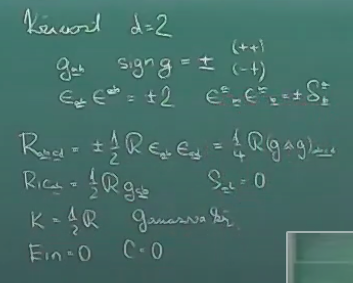 d=2
(++)
g_ab sign g = ± (-+)
ϵ_ab ϵ^ab = ±2 ϵ^a_m ϵ^m_b = ±δ^a_b
R_abcd = ±1/2 R ϵ_ab ϵ_cd = 1/4 R(g∧g)_abcd
Ric_ab = 1/2 R g_ab S_ab = 0
K = 1/2 R
Ein = 0 C = 0